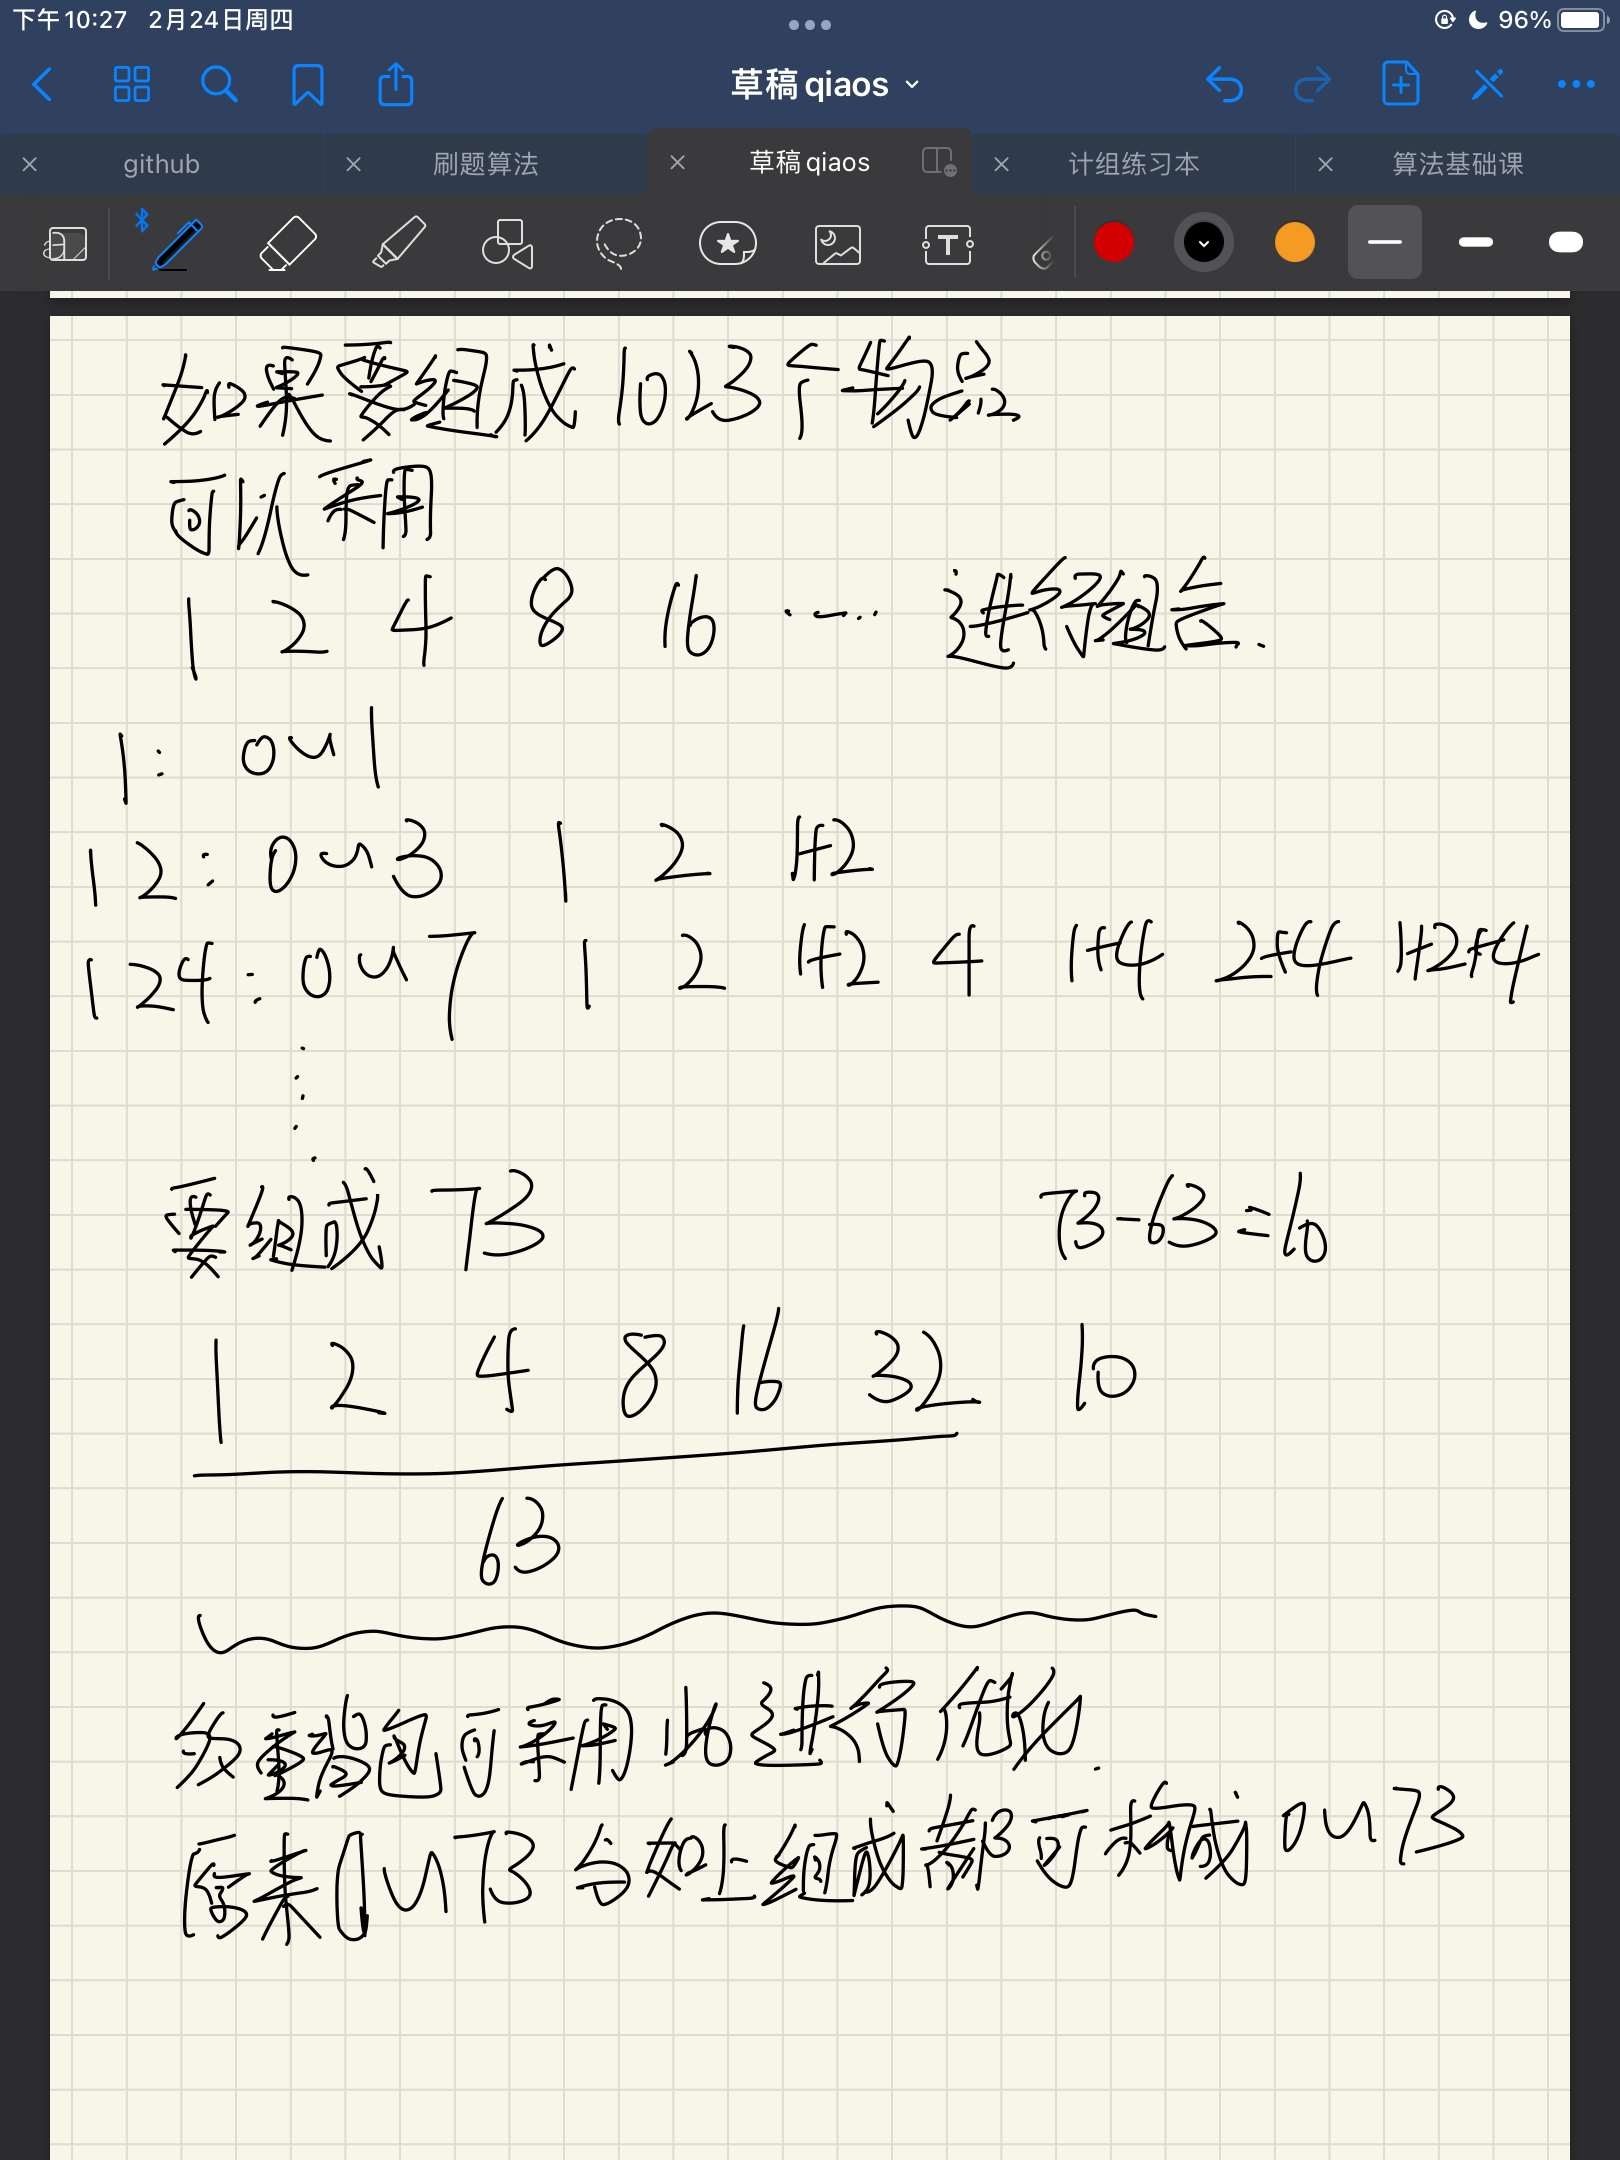 下午10:27 2月24日周四
96%
草稿qiaos
github
刷题算法
草稿qiaos
计组练习本
算法基础课
如果要组成1023个物品
可以采用
1 2 4 8 16 …… 进行组合.
1: 0~1
1 2: 0~3 1 2 1+2
1 2 4: 0~7 1 2 1+2 4 1+4 2+4 1+2+4
要组成 73 73-63=10
1 2 4 8 16 32 10
63
多重背包可采用此进行优化.
原来0~73 台如上组成都可构成0~73